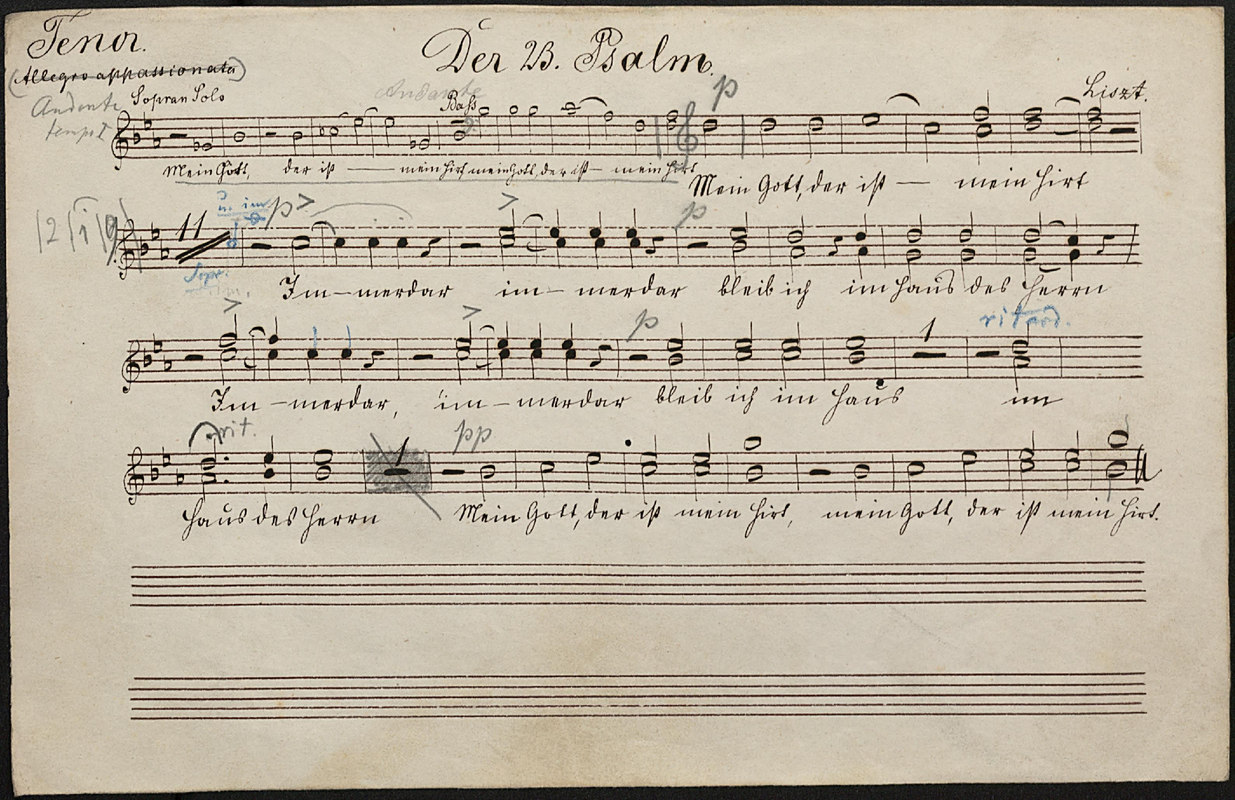 Tenor.
Der 23. Psalm.
(Allegro appassionata)
Liszt.
Andante
Sopran Solo
Andante
Baß
p
tempo I
Mein Gott, der ist — mein Hirt mein Gott, der ist — mein Hirt
Mein Gott, der ist — mein Hirt
11
p >
>
p
Sopr.
Im-merdar im-merdar bleib ich im Haus des Herrn
>
>
p
1
ritard.
Im-merdar, im-merdar bleib ich im Haus im
rit.
1
pp
Haus des Herrn Mein Gott, der ist mein Hirt, mein Gott, der ist mein Hirt.